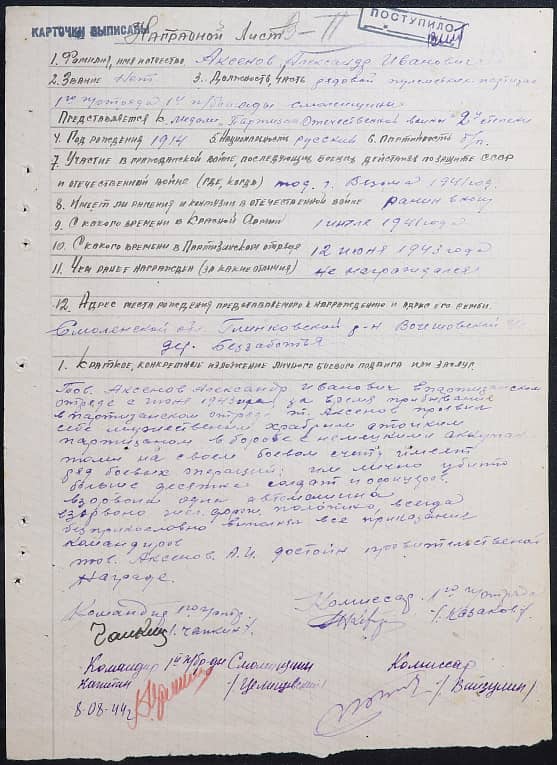 КАРТОЧКИ ВЫПИСАНЫ
ПОСТУПИЛО
Наградной Лист
1. Фамилия, имя и отчество Аксенов Александр Иванович
2. Звание Нет 3. Должность, часть рядовой пулеметчик партизан
1го п/отряда 1й п/бригады смоленщины
Представляется к медали Партизан Отечественной войны "2й степени
4. Год рождения 1914 5. Национальность русский 6. Партийность б/п.
7. Участие в гражданской войне, последующих боевых действиях по защите СССР
и отечественной войне (где, когда) под г. Вязьма 1941 год.
8. Имеет ли ранения и контузии в отечественной войне ранин в ногу
9. С какого времени в Красной Армии 1 июля 1941 года
10. С какого времени в Партизанском отряде 12 июня 1943 года
11. Чем ранее награжден (за какие отличия) не награждался
12. Адрес места рождения представляемого к награждению и адрес его семьи.
Смоленской обл. Глинковский р-н
дер. Беззаботье
1. Краткое, конкретное изложение личного боевого подвига или заслуг.
Тов. Аксенов Александр Иванович в партизанском
отряде с июня 1943 года за время прибывания
в партизанском отряде т. Аксенов проявил
себя мужественным храбрым стойким
партизаном в борьбе с немецкими аккупан-
тами на своем боевом счету имеет
ряд боевых операций: им лично убито
больше десятка солдат и офицеров.
взорвана одна автомашина
взорвано жел. дорож. полотно, всегда
безприкословно выполнял все приказания
командиров
тов. Аксенов А.И. достоин правительственной
Награде.
Командир 1го п/отр. Комиссар 1го п/отряда
/Чапкин/ /Казаков/
Командир 1й п/бр-ды Смоленщины Комиссар
капитан
8-08-44г.